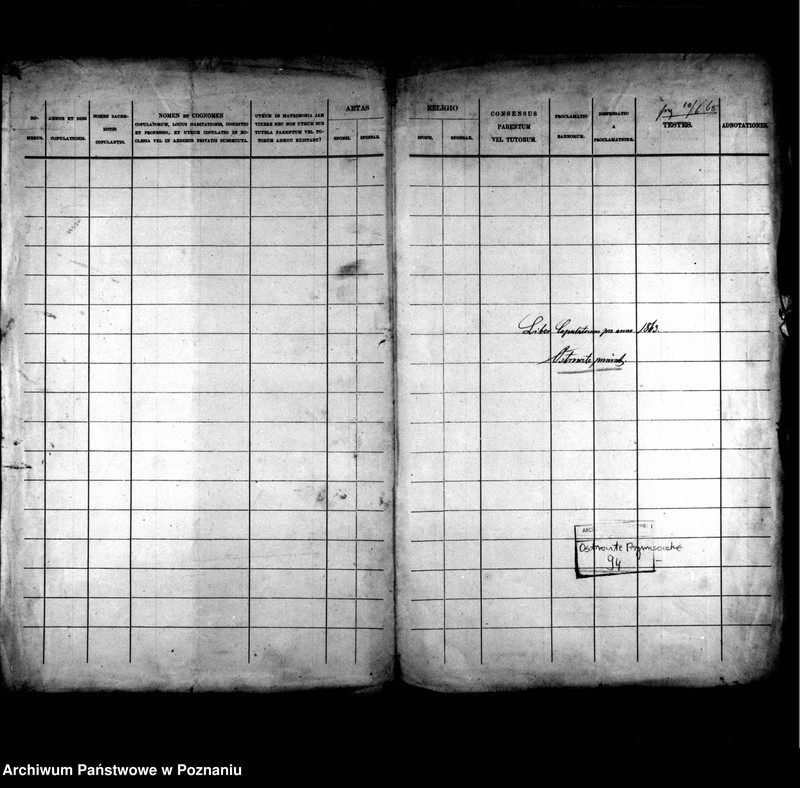 NU-
MERUS.
ANNUS ET DIES
COPULATIONIS.
NOMEN SACER-
DOTIS
COPULANTIS.
NOMEN ET COGNOMEN
COPULATORUM, LOCUS HABITATIONIS, CONDITIO
ET PROFESSIO, ET UTRUM COPULATIO IN EC-
CLESIA VEL IN AEDIBUS PRIVATIS SUBSECUTA.
UTRUM IN MATRIMONIO IAM
VIXERE NEC NON UTRUM SUB
TUTELA PARENTUM VEL TU-
TORUM ADHUC EXISTANT?
AETAS
SPONSI.
SPONSAE.
RELIGIO
SPONSI.
SPONSAE.
CONSENSUS
PARENTUM
VEL TUTORUM.
PROCLAMATIO
BANNORUM.
DISPENSATIO
A
PROCLAMATIONE.
10/6 65
TESTES.
ADNOTATIONES.
Liber Copulatorum pro anno 1863.
Ostrowite
Ostrowite Prymasowskie
94
Archiwum Państwowe w Poznaniu